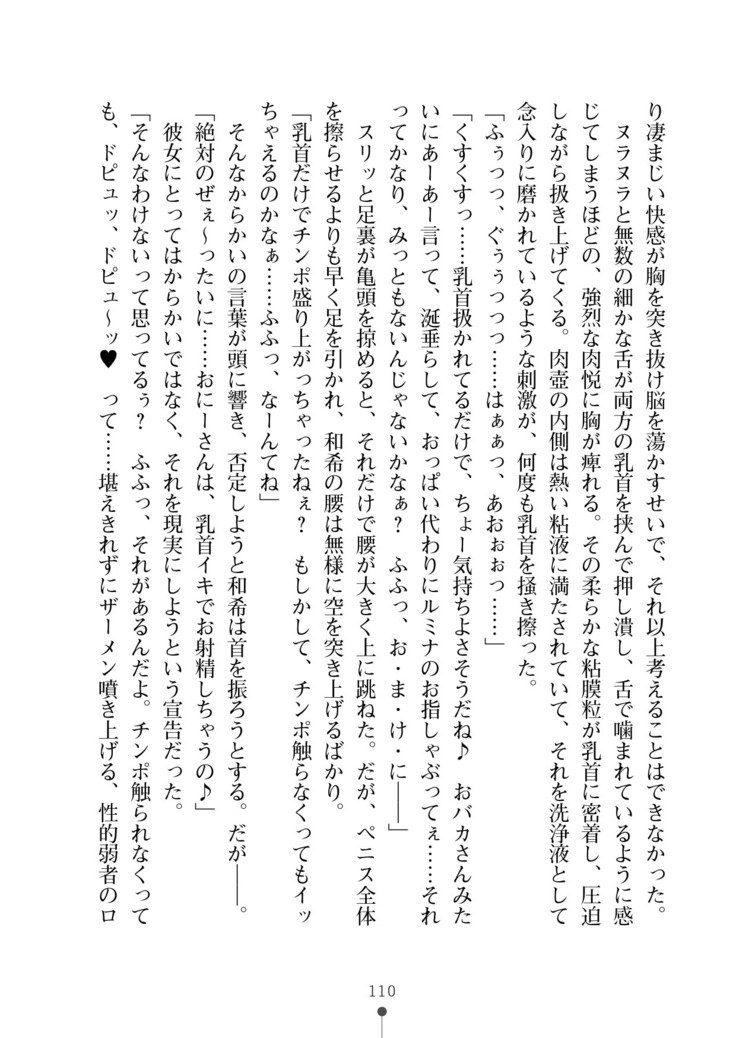 り凄まじい快感が胸を突き抜け脳を蕩かすせいで、それ以上考えることはできなかった。
　ヌラヌラと無数の細かな舌が両方の乳首を挟んで押し潰し、舌で噛まれているように感
じてしまうほどの、強烈な肉悦に胸が痺れる。その柔らかな粘膜粒が乳首に密着し、圧迫
しながら扱き上げてくる。肉壺の内側は熱い粘液に満たされていて、それを洗浄液として
念入りに磨かれているような刺激が、何度も乳首を掻き擦った。
「ふぅっっ、ぐぅぅっっっ……はぁぁっ、あおぉぉっ……」
「くすくすっ……乳首扱かれてるだけで、ちょー気持ちよさそうだね♪　おバカさんみた
いにあーあー言って、涎垂らして、おっぱい代わりにルミナのお指しゃぶってぇ……それ
ってかなり、みっともないんじゃないかなぁ？　ふふっ、お・ま・け・に――」
　スリッと足裏が亀頭を掠めると、それだけで腰が大きく上に跳ねた。だが、ペニス全体
を擦らせるよりも早く足を引かれ、和希の腰は無様に空を突き上げるばかり。
「乳首だけでチンポ盛り上がっちゃったねぇ？　もしかして、チンポ触らなくってもイッ
ちゃえるのかなぁ……ふふっ、なーんてね」
　そんなからかいの言葉が頭に響き、否定しようと和希は首を振ろうとする。だが――。
「絶対のぜぇ～ったいに……おにーさんは、乳首イキでお射精しちゃうの♪」
　彼女にとってはからかいではなく、それを現実にしようという宣告だった。
「そんなわけないって思ってるぅ？　ふふっ、それがあるんだよ。チンポ触られなくって
も、ドピュッ、ドピュ～ッ♥　って……堪えきれずにザーメン噴き上げる、性的弱者のロ
110